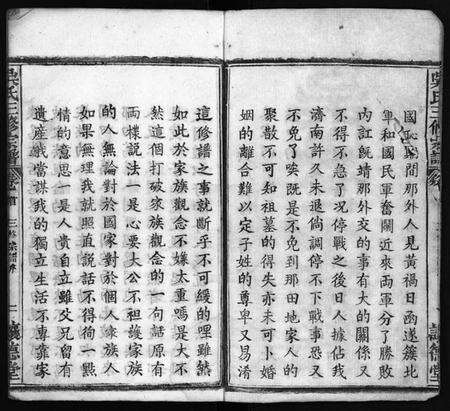 國恥民間那外人見黃禍日函遂簇北
軍和國民軍奮鬭近來兩軍分了勝敗
內訌旣靖那外交的事有大的關係又
不得不忌了况停戰之後日人據佔我
濟南許久未退倘調停不下戰事恐又
不免了旣是不免到那田地家人的
聚散不可知祖墓的得失亦未可卜婚
姻的離合難以定子姓的尊卑又易淆
這修譜之事就斷乎不可緩的哩雖然
如此於家族觀念不嫌太重嗎是大不
然這個打破家族觀念的一句話原有
兩樣說法一是心要大公不祖護家族
的人無論對於國家對於個人家族人
如果無理我就照直說話不得徇一點
情的意思一是人貴自立雖父兄留有
遺產瓾當謀我的獨立生活不專靠家
吳氏三修宗譜
卷首
三修宗譜序
二
議德堂